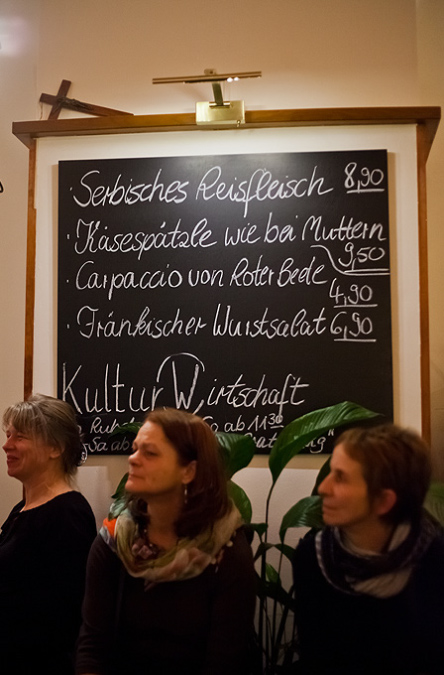 · Serbisches Reisfleisch 8,90
· Käsespätzle wie bei Muttern
9,50
· Carpaccio von Roter Bede
4,90
· Fränkischer Wurstsalat 6,90
KulturWirtschaft
ab 11³⁰
Sa ab